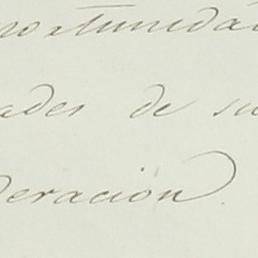 ortunida
ades de su
deracion